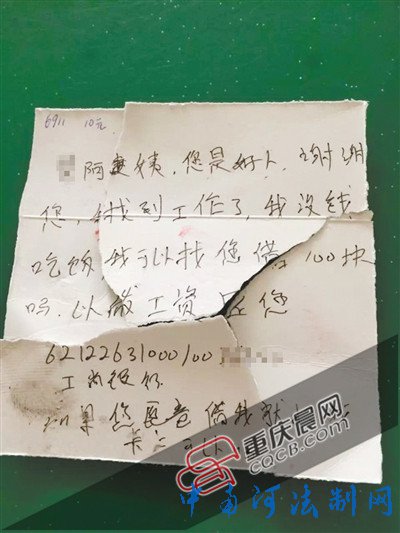 6911 10元
阿姨,您是好人,谢谢
您,我找到工作了,我没钱
吃饭我可以找您借100块
吗,以后工资还您
62122631000100
工商银行
如果您愿意借我就
卡
可以
重庆晨网
CQCB.COM
中国河法制网